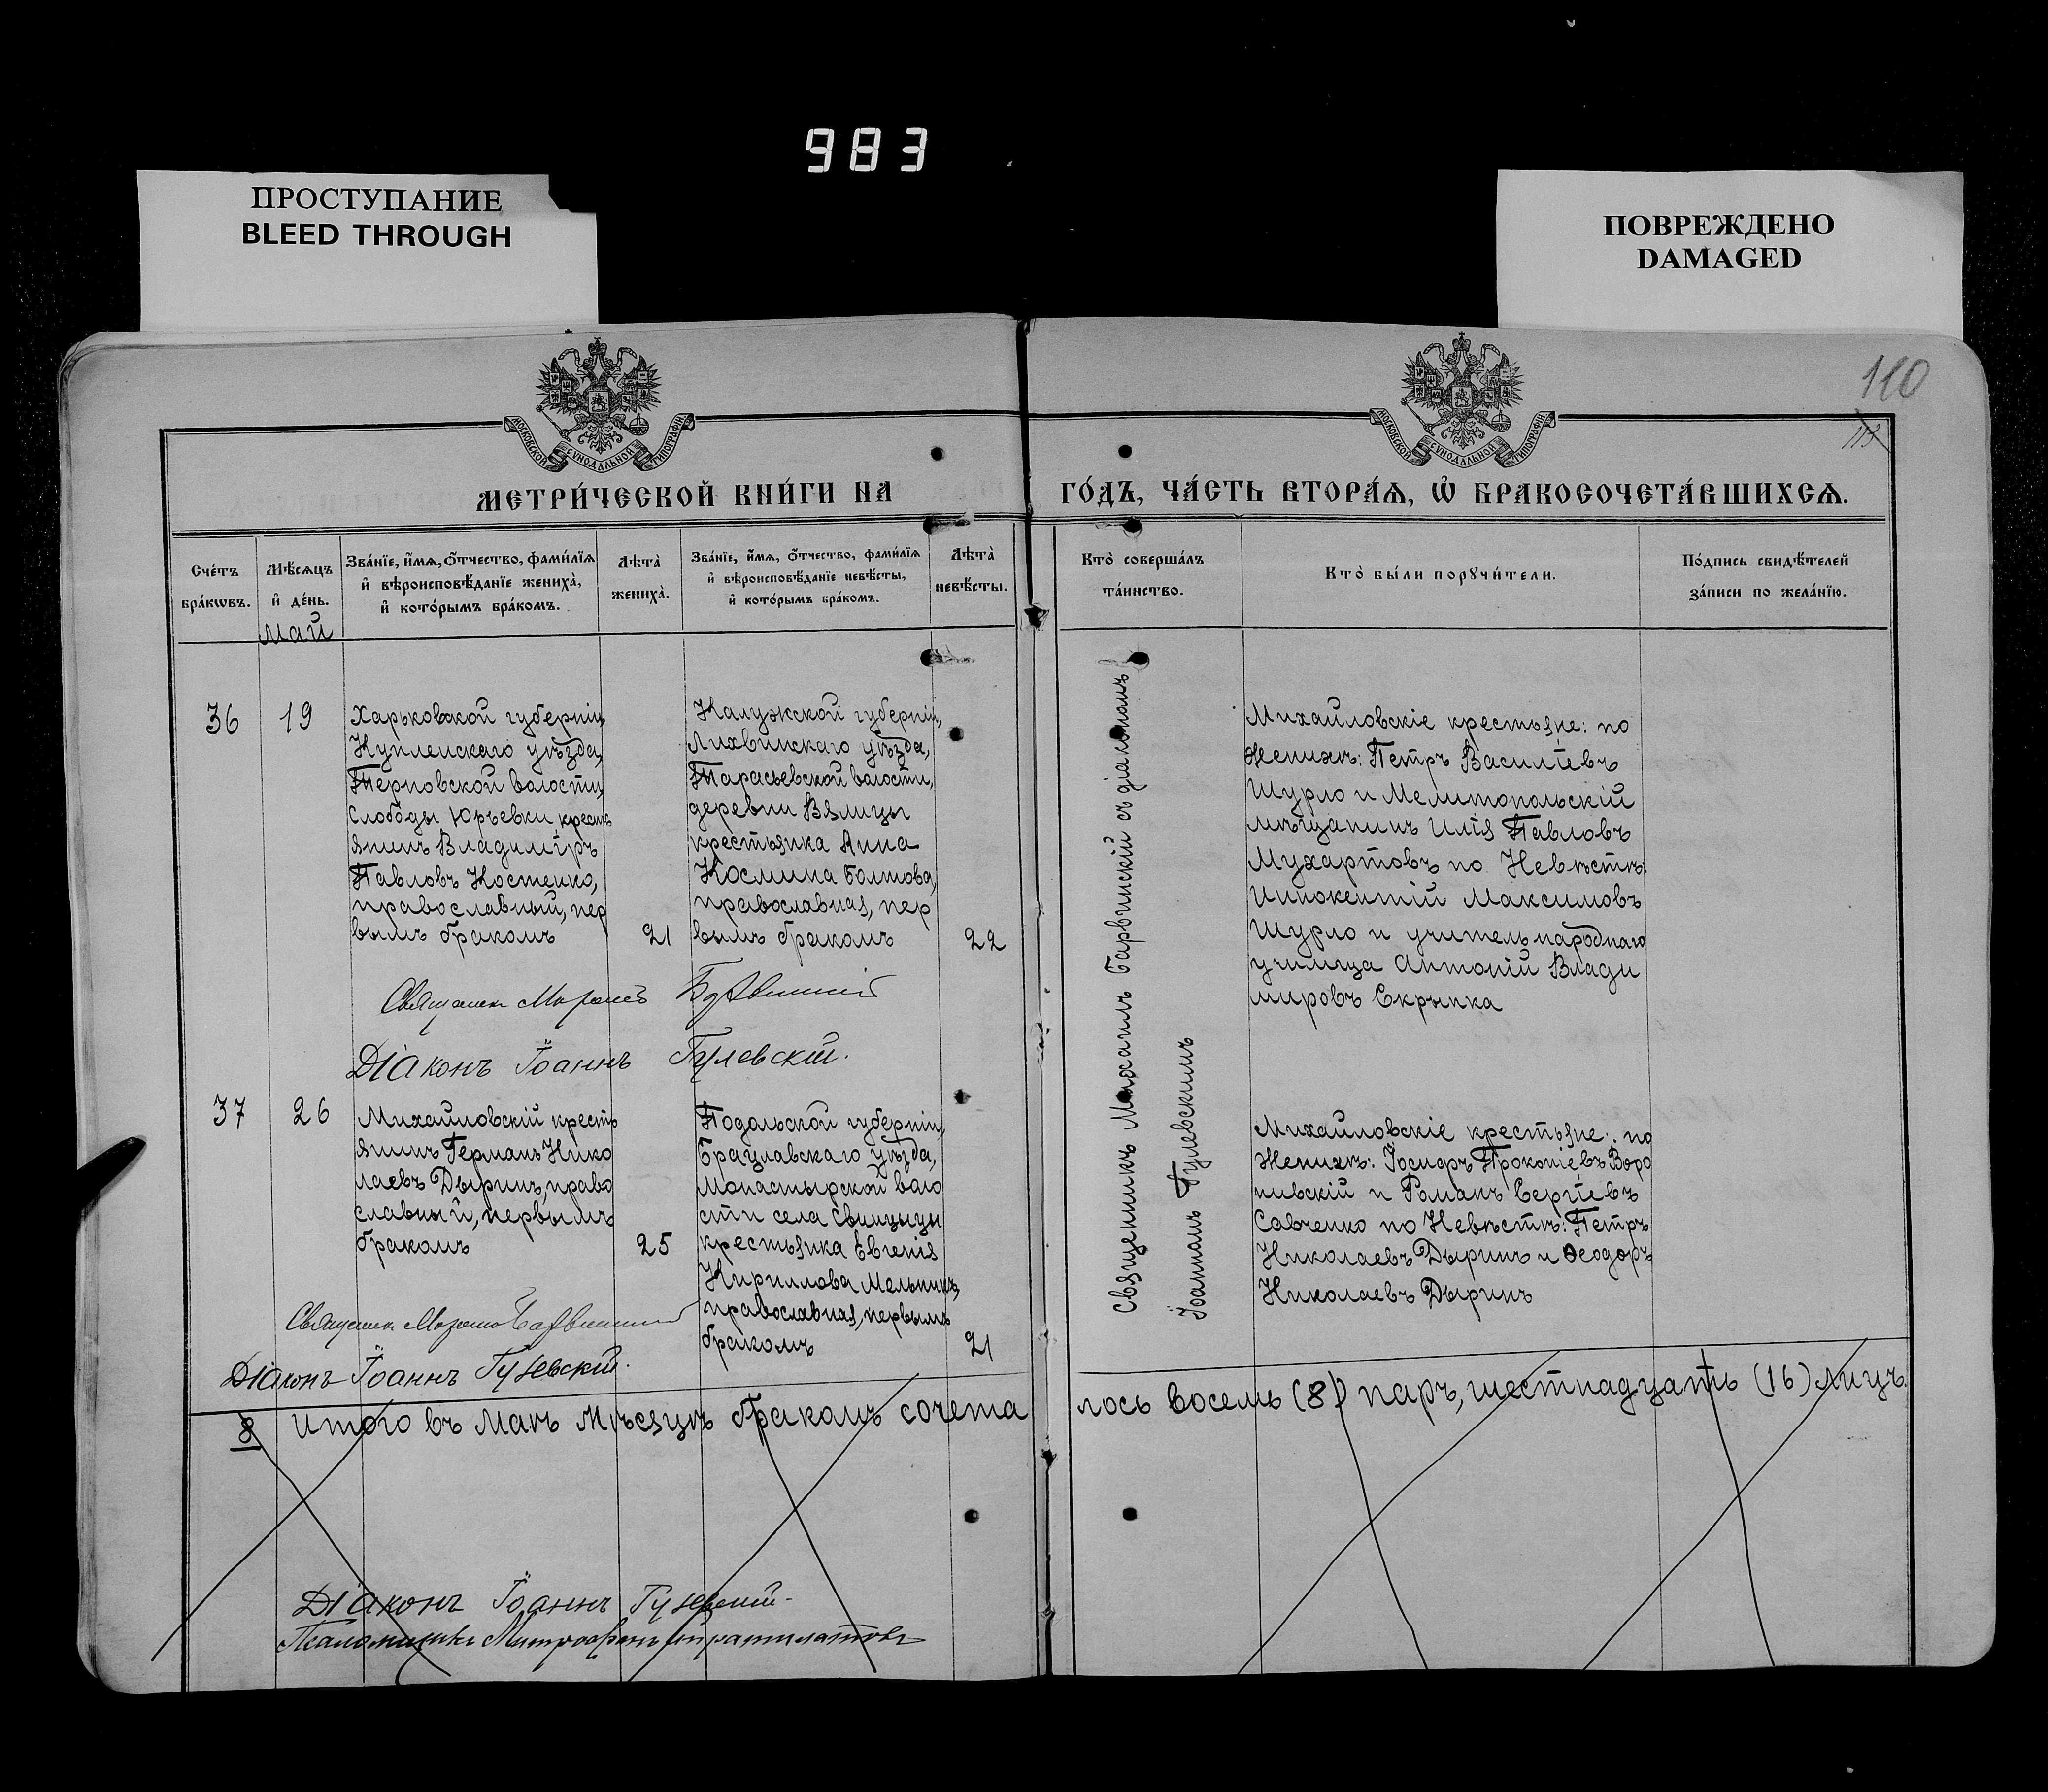 983
ПРОСТУПАНИЕ
BLEED THROUGH
ПОВРЕЖДЕНО
DAMAGED
110
МОСКОВСКОЙ СУНОДАЛЬНОЙ ТИПОГРАФІИ
МОСКОВСКОЙ СУНОДАЛЬНОЙ ТИПОГРАФІИ
МЕТРИ́ЧЕСКОЙ КНИ́ГИ НА
ГО́ДЪ, ЧА́СТЬ ВТОРА́Ѧ, Ѽ БРАКОСОЧЕТА́ВШИХСѦ.
Сче́тъ
бра́кѡвъ.
Мѣ́сѧцъ
и҆ де́нь.
Зва́нїе, и҆́мѧ, ѻ҆́тчество, фами́лїѧ
и҆ вѣроисповѣ́данїе жениха̀,
и҆ кото́рымъ бра́комъ.
Лѣта̀
жениха̀.
Зва́нїе, и҆́мѧ, ѻ҆́тчество, фами́лїѧ
и҆ вѣроисповѣ́данїе невѣ́сты,
и҆ кото́рымъ бра́комъ.
Лѣта̀
невѣ́сты.
Кто̀ соверша́лъ
та́инство.
Кто̀ бы́ли порꙋчи́тели.
По́дпись свидѣ́телей
за́писи по жела́нїю.
Май
36
19
Харьковской губерніи
Купленскаго уѣзда,
Терновской волости,
Слободы Юрьевки кресть
янинъ Владиміръ
Павловъ Костенко,
православный, пер
вымъ бракомъ
21
Калужской губерніи,
Лихвинскаго уѣзда,
Тарасьевской волости,
деревни Вялицы
крестьянка Анна
Космина Болтова,
православная, пер
вымъ бракомъ
22
Михайловскіе крестьяне: по
Женихѣ: Петръ Василіевъ
Шурло и Мелитопольскій
мѣщанинъ Илія Павловъ
Мухартовъ по Невѣстѣ:
Иннокентій Максимовъ
Шурло и учитель народнаго
училища Антоній Влади
мировъ Скрыпка
Священникъ Михаилъ Барвинскій съ діакономъ
Іоанномъ Гулевскимъ
Діаконъ Іоаннъ Гулевскій.
37
26
Михайловскій кресть
янинъ Германъ Нико
лаевъ Дыринъ, право
славный, первымъ
бракомъ
25
Подольской губерніи,
Брацлавскаго уѣзда,
Монастырской воло
сти села Свинцицы
крестьянка Евгенія
Кириллова Мельникъ,
православная, первымъ
бракомъ
21
Михайловскіе крестьяне: по
Женихѣ: Іосифъ Прокопіевъ Воро
нивскій и Романъ Сергіевъ
Савченко по Невѣстѣ: Петръ
Николаевъ Дыринъ и Ѳеодоръ
Николаевъ Дыринъ
Діаконъ Іоаннъ Гулевскій.
8 Итого въ Маѣ мѣсяцѣ бракомъ сочета
лось восемь (8) паръ, шестнадцать (16) лицъ.
Діаконъ Іоаннъ Гулевскій.
Псаломщикъ Митрофанъ